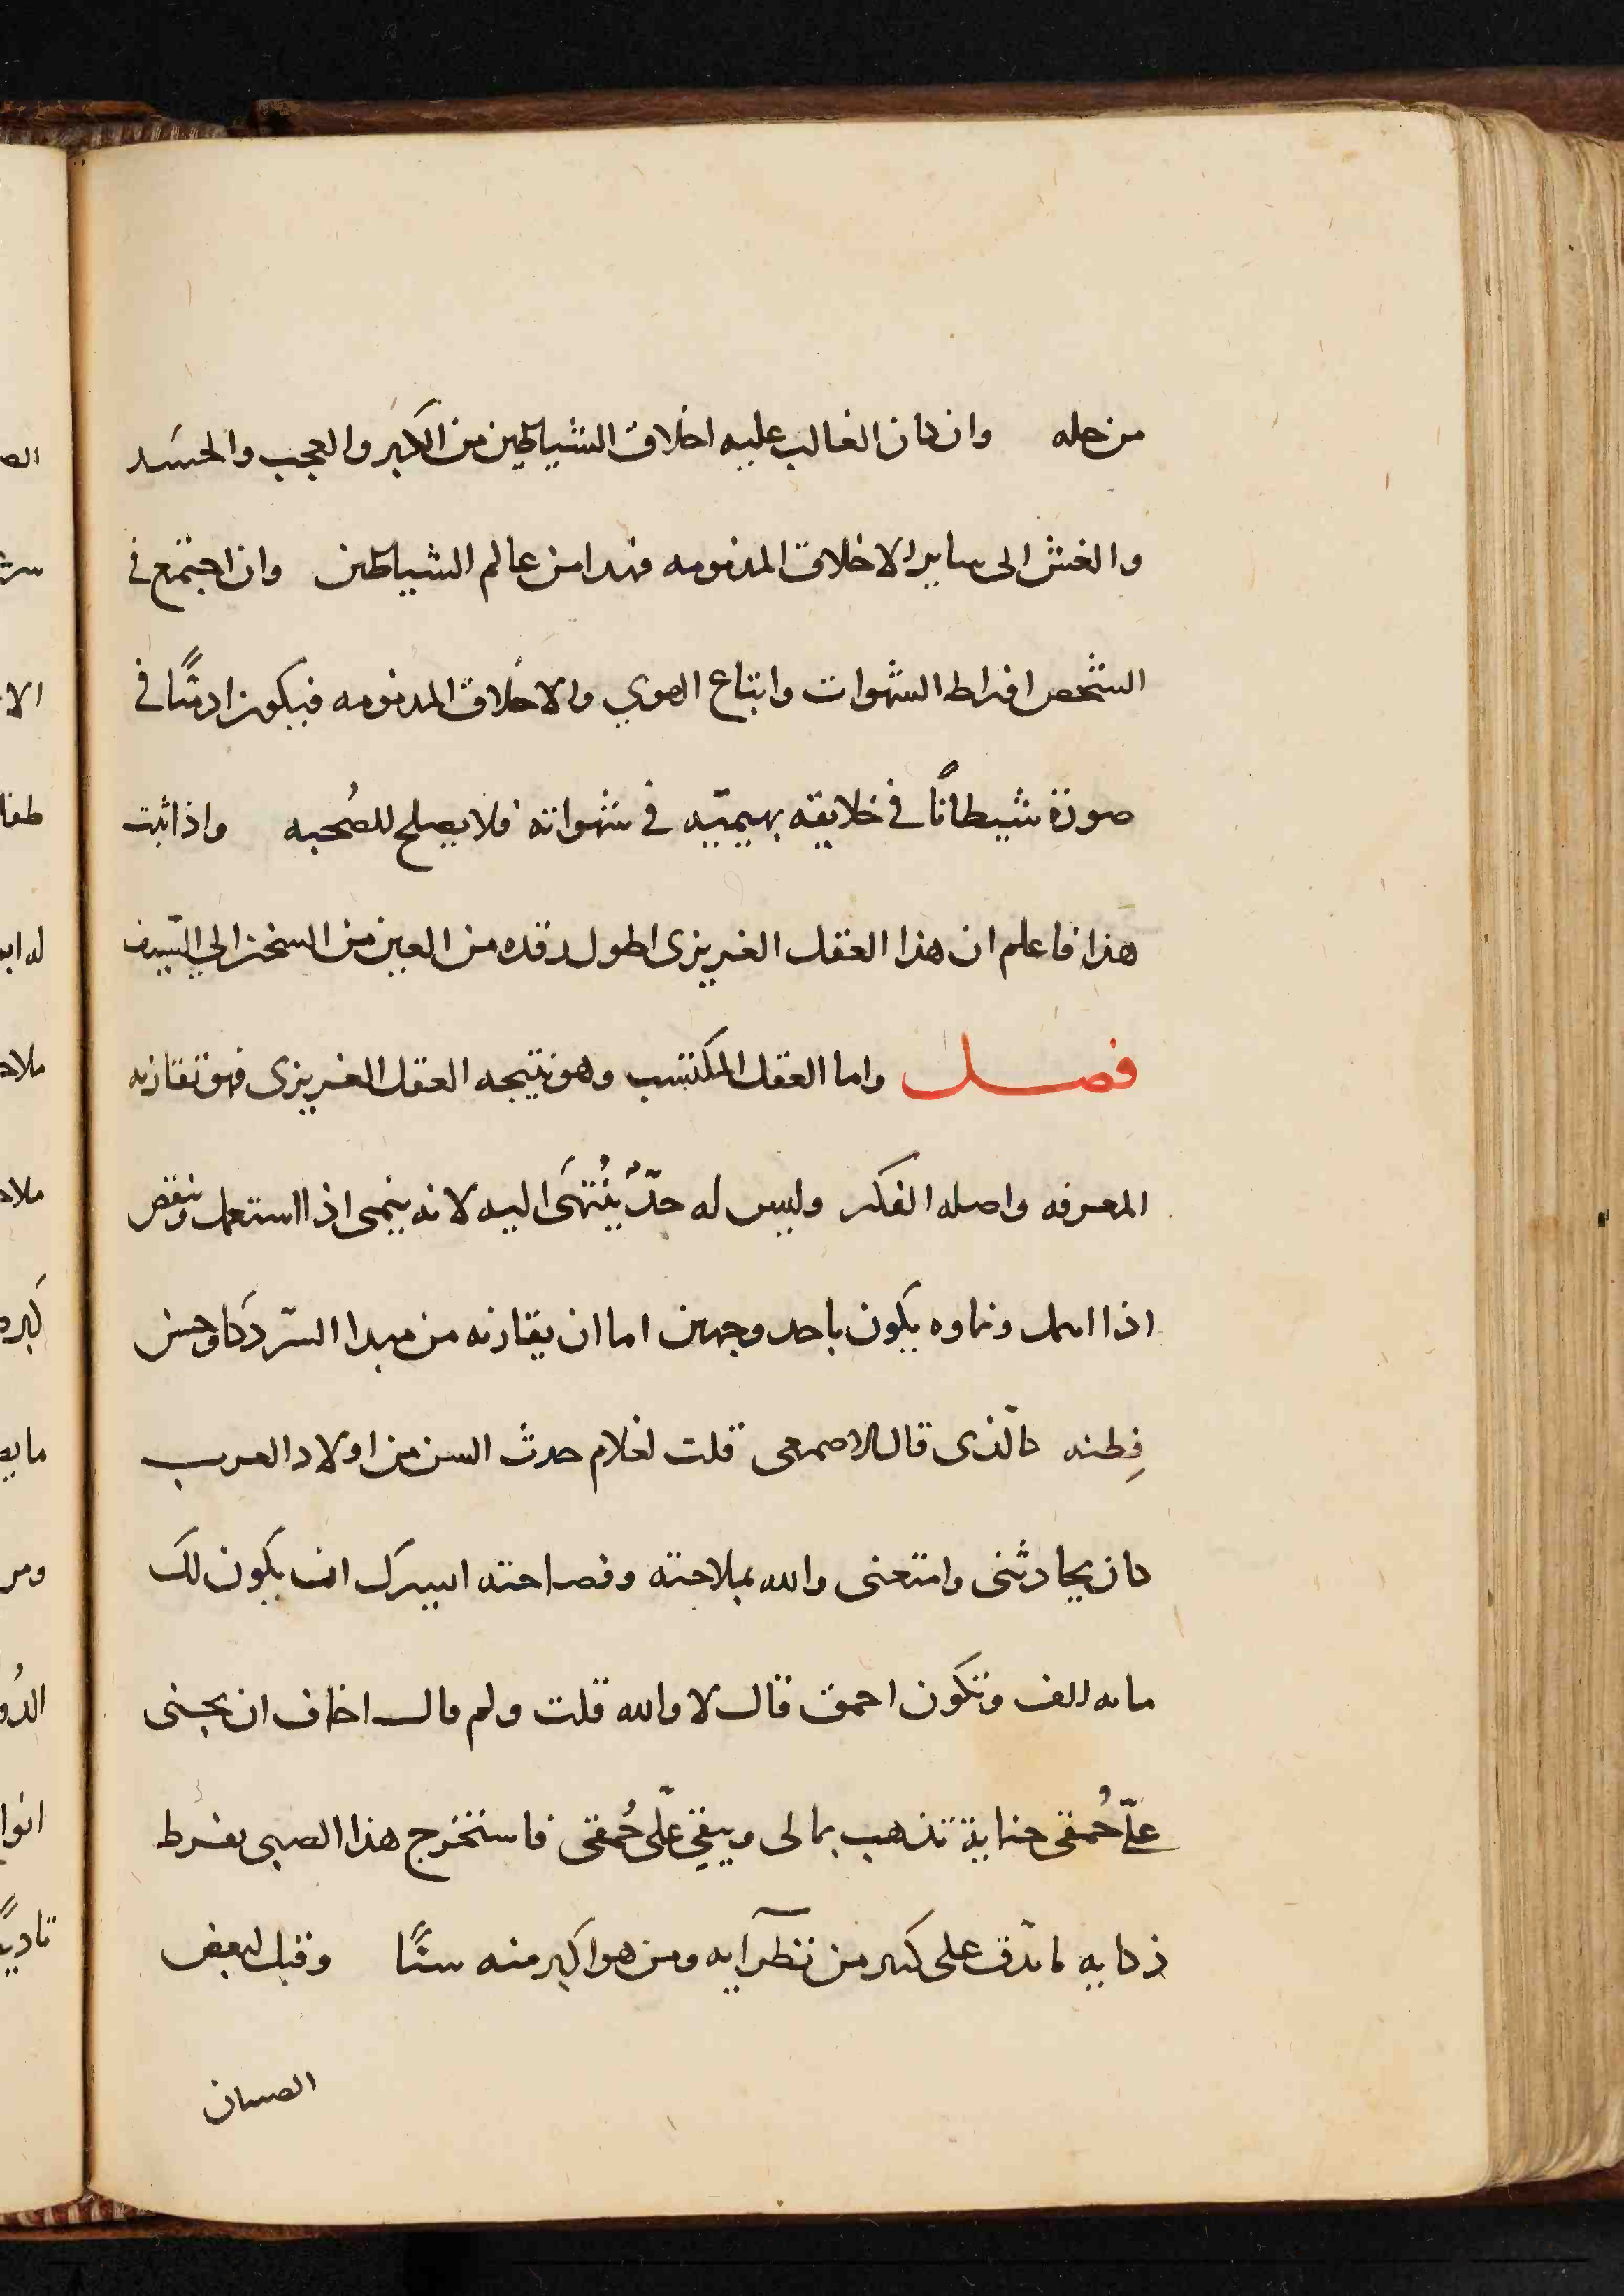 من جمله وان كان الغالب عليه اخلاق الشياطين من الكبر والعجب والحسَد
والغش الى ساير الاخلاق المذمومه فهدا من عالم الشياطين وان اجتمع في
الشخص افراط الشهوات واتباع الهوي والاخلاق المدمومه فيكون ادميًّا في
صورة شيطانًا في خلايقه بهيميّه في شهواته فلا يصلح للصُحبه واذا ثبت
هذا فاعلم ان هذا العقل الغريزى اطول رقده من العين من السخن الي السيف
فصل واما العقل المكتسب وهو نتيجه العقل الغريزى فهو تقارنه
المعرفه واصله الفكر وليس له حدٌّ يُنْتهَى اليه لانه ينمى اذا استعمل وينقص
اذا اهمل ونماوه يكون باحد وجهين اما ان يقارنه من مبدا السّن ذكا وحسن
فِطنه كالّذى قال الاصمعى قلت لغلام حدث السن من اولاد العرب
كان يحادثنى وامتعنى والله بملاحته وفصاحته ايسرك ان يكون لك
مايه الف وتكون احمق قال لا والله قلت ولم قال اخاف ان يجنى
علىّ حُمقى جناية تذهب بمالى ويبقى علّى حُمقى فاستخرج هذا الصبى بفرط
ذكايه ما تدق على كثير من نظرآيه ومن هو اكبر منه سنًّا وقيل لبعض
الصبيان